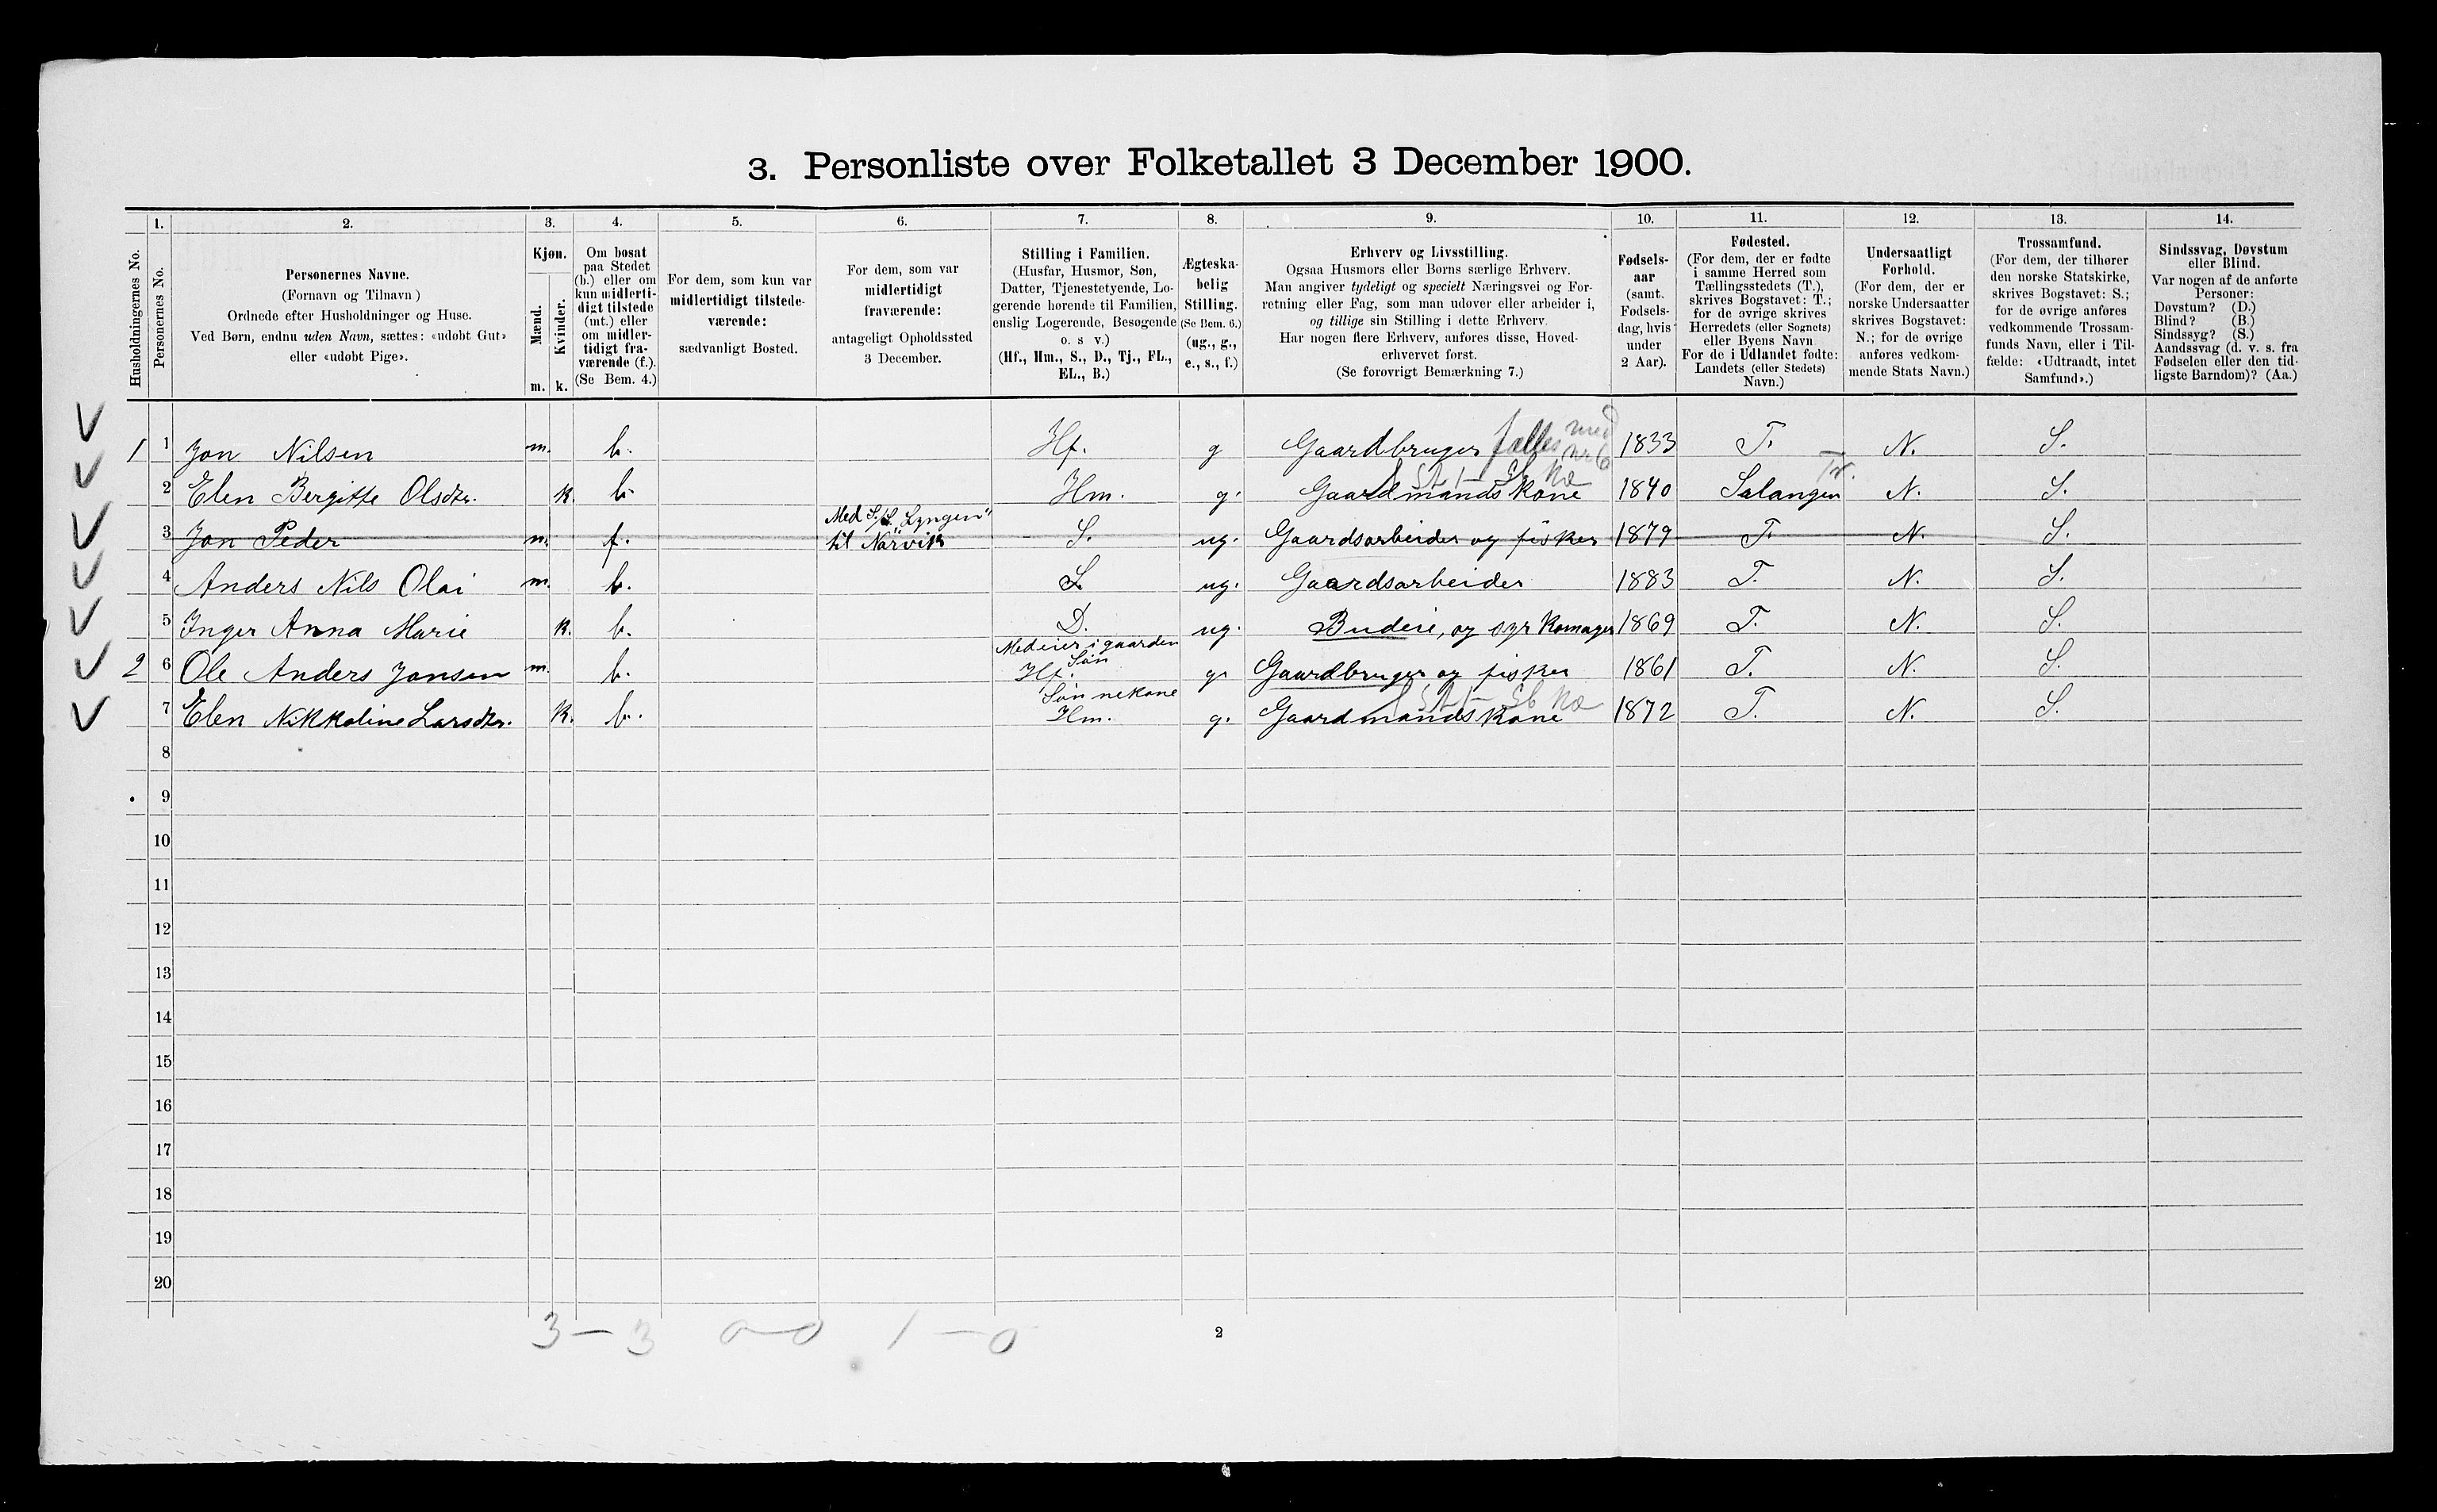 3. Personliste over Folketallet 3 December 1900.
1. 2. 3. 4. 5. 6. 7. 8. 9. 10. 11. 12. 13. 14.
Husholdningernes No.
Personernes No.
Personernes Navne.
(Fornavn og Tilnavn)
Ordnede efter Husholdninger og Huse.
Ved Børn, endnu uden Navn, sættes: «udøbt Gut»
eller «udøbt Pige».
Kjøn.
Mænd.
Kvinder.
m. k.
Om bosat
paa Stedet
(b.) eller om
kun midlerti-
digt tilstede
(mt.) eller
om midler-
tidigt fra-
værende (f.).
(Se Bem. 4.)
For dem, som kun var
midlertidigt tilstede-
værende:
sædvanligt Bosted.
For dem, som var
midlertidigt
fraværende:
antageligt Opholdssted
3 December.
Stilling i Familien.
(Husfar, Husmor, Søn,
Datter, Tjenestetyende, Lo-
gerende hørende til Familien,
enslig Logerende, Besøgende
o. s v.)
(Hf., Hm., S., D., Tj., FL.,
EL., B.)
Ægteska-
belig
Stilling.
(Se Bem. 6.)
(ug., g.,
e., s., f.)
Erhverv og Livsstilling.
Ogsaa Husmors eller Børns særlige Erhverv.
Man angiver tydeligt og specielt Næringsvei og For-
retning eller Fag, som man udover eller arbeider i,
og tillige sin Stilling i dette Erhverv.
Har nogen flere Erhverv, anføres disse, Hoved-
erhvervet først.
(Se forøvrigt Bemærkning 7.)
Fødsels-
aar
(samt.
Fødsels-
dag, hvis
under
2 Aar).
Fødested.
(For dem, der er fødte
i samme Herred som
Tællingsstedets (T.),
skrives Bogstavet: T.;
for de øvrige skrives
Herredets (eller Sognets)
eller Byens Navn
For de i Udlandet fødte:
Landets (eller Stedets)
Navn.)
Undersaatligt
Forhold.
(For dem, der er
norske Undersaatter
skrives Bogstavet:
N.; for de øvrige
anføres vedkom-
mende Stats Navn.)
Trossamfund.
(For dem, der tilhører
den norske Statskirke,
skrives Bogstavet: S.;
for de øvrige anføres
vedkommende Trossam-
funds Navn, eller i Til-
fælde: «Udtraadt, intet
Samfund».)
Sindssvag, Døvstum
eller Blind.
Var nogen af de anførte
Personer:
Døvstum? (D.)
Blind? (B.)
Sindssyg? (S.)
Aandssvag (d. v. s. fra
Fødselen eller den tid-
ligste Barndom)? (Aa.)
1 1 Jon Nilsen m. b. Hf. g Gaardbruger fælles med nr 6 1833 T. N. S.
2 Elen Bergitte Olsdtr. k. b. Hm. g. Gaardmands kone 1840 Salangen Tr. N. S.
3 Jon Peder m. f. Med S/S. "Lyngen" til Narvik S. ug. Gaardsarbeider og fisker 1879 T. N. S.
4 Anders Nils Olai m. b. S. ug. Gaardsarbeider 1883 T. N. S.
5 Inger Anna Marie k. b. D. ug. Budeie, og syr Komager 1869 T. N. S.
2 6 Ole Anders Jonsen m. b. Medeier i gaarden Søn Hf. g. Gaardbruger og fisker 1861 T. N. S.
7 Elen Nikkoline Larsdtr. k. b. Sønnekone Hm. g. Gaardmands kone 1872 T. N. S.
8
9
10
11
12
13
14
15
16
17
18
19
20
3 – 3 0–0 1 – 0
2